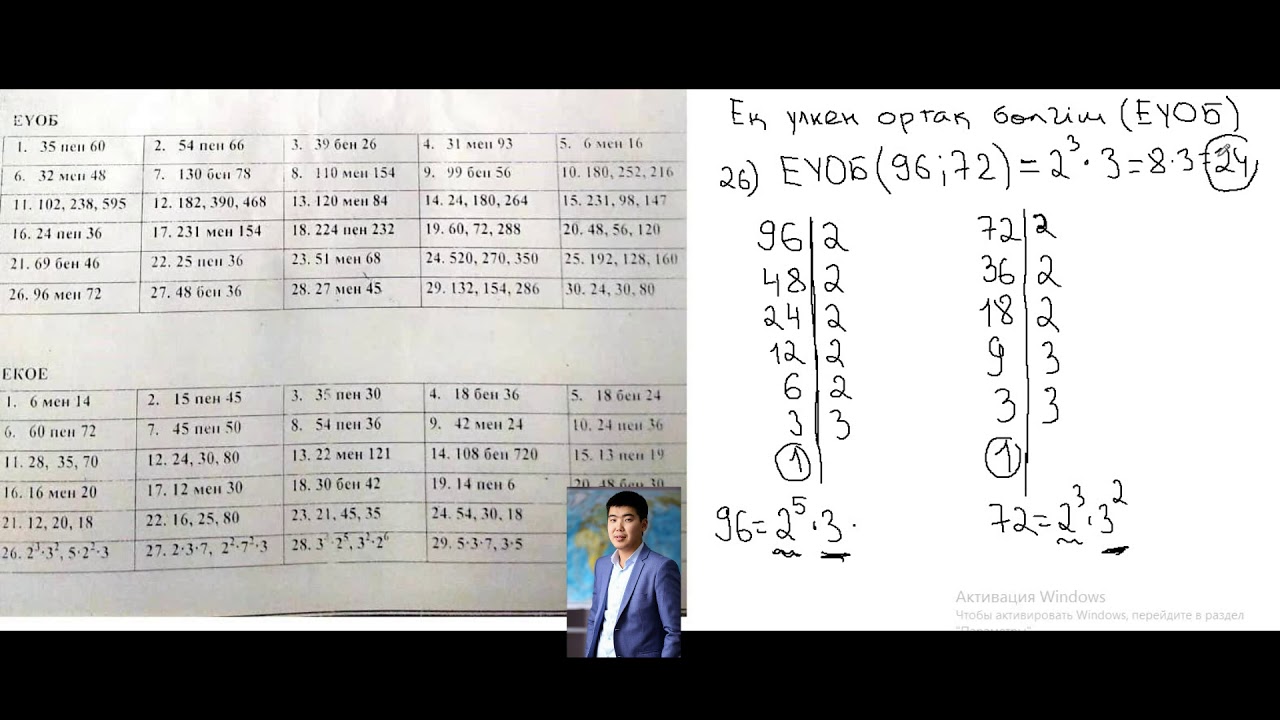 ЕҮОБ
1. 35 пен 60 2. 54 пен 66 3. 39 бен 26 4. 31 мен 93 5. 6 мен 16
6. 32 мен 48 7. 130 бен 78 8. 110 мен 154 9. 99 бен 56 10. 180, 252, 216
11. 102, 238, 595 12. 182, 390, 468 13. 120 мен 84 14. 24, 180, 264 15. 231, 98, 147
16. 24 пен 36 17. 231 мен 154 18. 224 пен 232 19. 60, 72, 288 20. 48, 56, 120
21. 69 бен 46 22. 25 пен 36 23. 51 мен 68 24. 520, 270, 350 25. 192, 128, 160
26. 96 мен 72 27. 48 бен 36 28. 27 мен 45 29. 132, 154, 286 30. 24, 30, 80
ЕКОЕ
1. 6 мен 14 2. 15 пен 45 3. 35 пен 30 4. 18 бен 36 5. 18 бен 24
6. 60 пен 72 7. 45 пен 50 8. 54 пен 36 9. 42 мен 24 10. 24 пен 36
11. 28, 35, 70 12. 24, 30, 80 13. 22 мен 121 14. 108 бен 720 15. 13 пен 19
16. 16 мен 20 17. 12 мен 30 18. 30 бен 42 19. 14 пен 6 20. 48 бен 30
21. 12, 20, 18 22. 16, 25, 80 23. 21, 45, 35 24. 54, 30, 18
26. 2³·3², 5·2²·3 27. 2·3·7, 2²·7²·3 28. 2⁵, 3²·2⁶ 29. 5·3·7, 3·5
Ең үлкен ортақ бөлгіш (ЕҮОБ)
26) ЕҮОБ(96;72)=2³·3=8·3=24
96 2
48 2
24 2
12 2
6 2
3 3
1
96=2⁵·3·
72 2
36 2
18 2
9 3
3 3
1
72=2³·3²
Активация Windows
Чтобы активировать Windows, перейдите в раздел